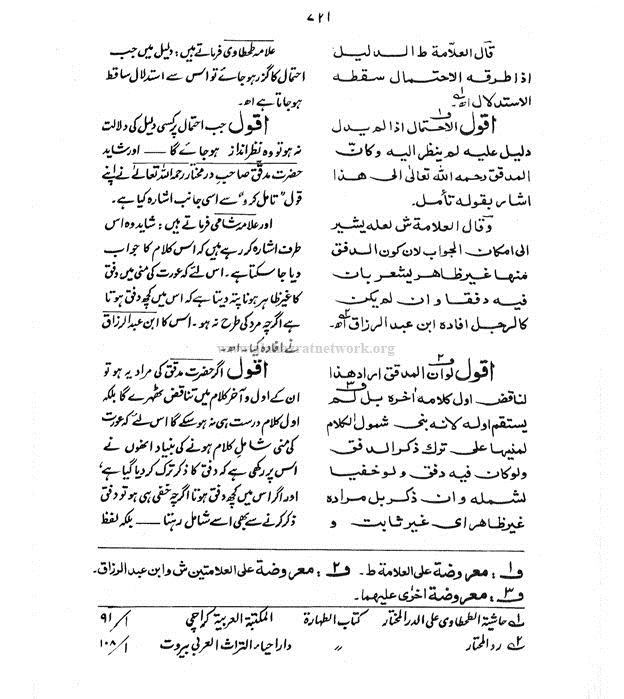 ۷۲۱
قال العلّامة ط الدليل
اذا طرقه الاحتمال سقطه
الاستدلال اھ۱؎۔
اقول الاحتمال اذا لم يدل
دليل عليه لم ينظر اليه وكان
المدقق رحمه الله تعالٰى الى هذا
اشار بقوله تأمل۔
وقال العلامة ش لعله يشير
الى امكان الجواب لان كون الدفق
منها غير ظاهر يشعر بان
فيه دفقا وان لم يكن
كالرجل افاده ابن عبد الرزاق اھ۲؎۔
اقول لو ان المدقق اراد هذا
لناقض اول كلامه اٰخره بل لم
يستقم اوله لانه بنى شمول الكلام
لمنيها على ترك ذكر الدفق
ولو كان فيه دفق ولو خفيا
لشمله وان ذكر بل مراده
غير ظاهر اى غير ثابت و
علامہ طحطاوی فرماتے ہیں: دلیل میں جب
احتمال کا گزر ہو جائے تو اس سے استدلال ساقط
ہو جاتا ہے اھ۔
اقول جب احتمال پر کسی دلیل کی دلالت
نہ ہو تو وہ نظر انداز ہو جائے گا ــــ اور شاید
حضرت مدقق صاحبِ درمختار رحمہ اللہ تعالٰے نے اپنے
قول "تامل کرو" سے اسی جانب اشارہ کیا ہے۔
اور علامہ شامی فرماتے ہیں: شاید وہ اس
طرف اشارہ کر رہے ہیں کہ اس کلام کا جواب
دیا جا سکتا ہے۔ اس لئے کہ عورت کی منی میں دفق
کا غیر ظاہر ہونا پتہ دیتا ہے کہ اس میں کچھ دفق ہوتا
ہے اگرچہ مرد کی طرح نہ ہو۔ اس کا ابن عبد الرزاق
نے افادہ کیا۔ اھ۔
اقول اگر حضرت مدقق کی مراد یہ ہو تو
ان کے اول و آخر کلام میں تناقض ٹھہرے گا بلکہ
اول کلام درست ہی نہ ہو سکے گا اس لئے کہ عورت
کی منی شاملِ کلام ہونے کی بنیاد انھوں نے
اس پر رکھی ہے کہ دفق کا ذکر ترک کر دیا گیا ہے،
اور اگر اس میں کچھ دفق ہوتا اگرچہ خفی ہی ہو تو دفق
ذکر کرنے سے بھی اسے شامل رہتا ــــ بلکہ لفظ
ف۱: معروضة على العلامة ط۔ ف۲: معروضة على العلامتين ش وابن عبد الرزاق۔
ف۳: معروضة اخرٰى عليهما۔
۱؎ حاشیة الطحطاوی علی الدر المختار کتاب الطہارة المکتبة العربیة کراچی ۱/ ۹۱
۲؎ رد المحتار " دار احیاء التراث العربی بیروت ۱/ ۱۰۸